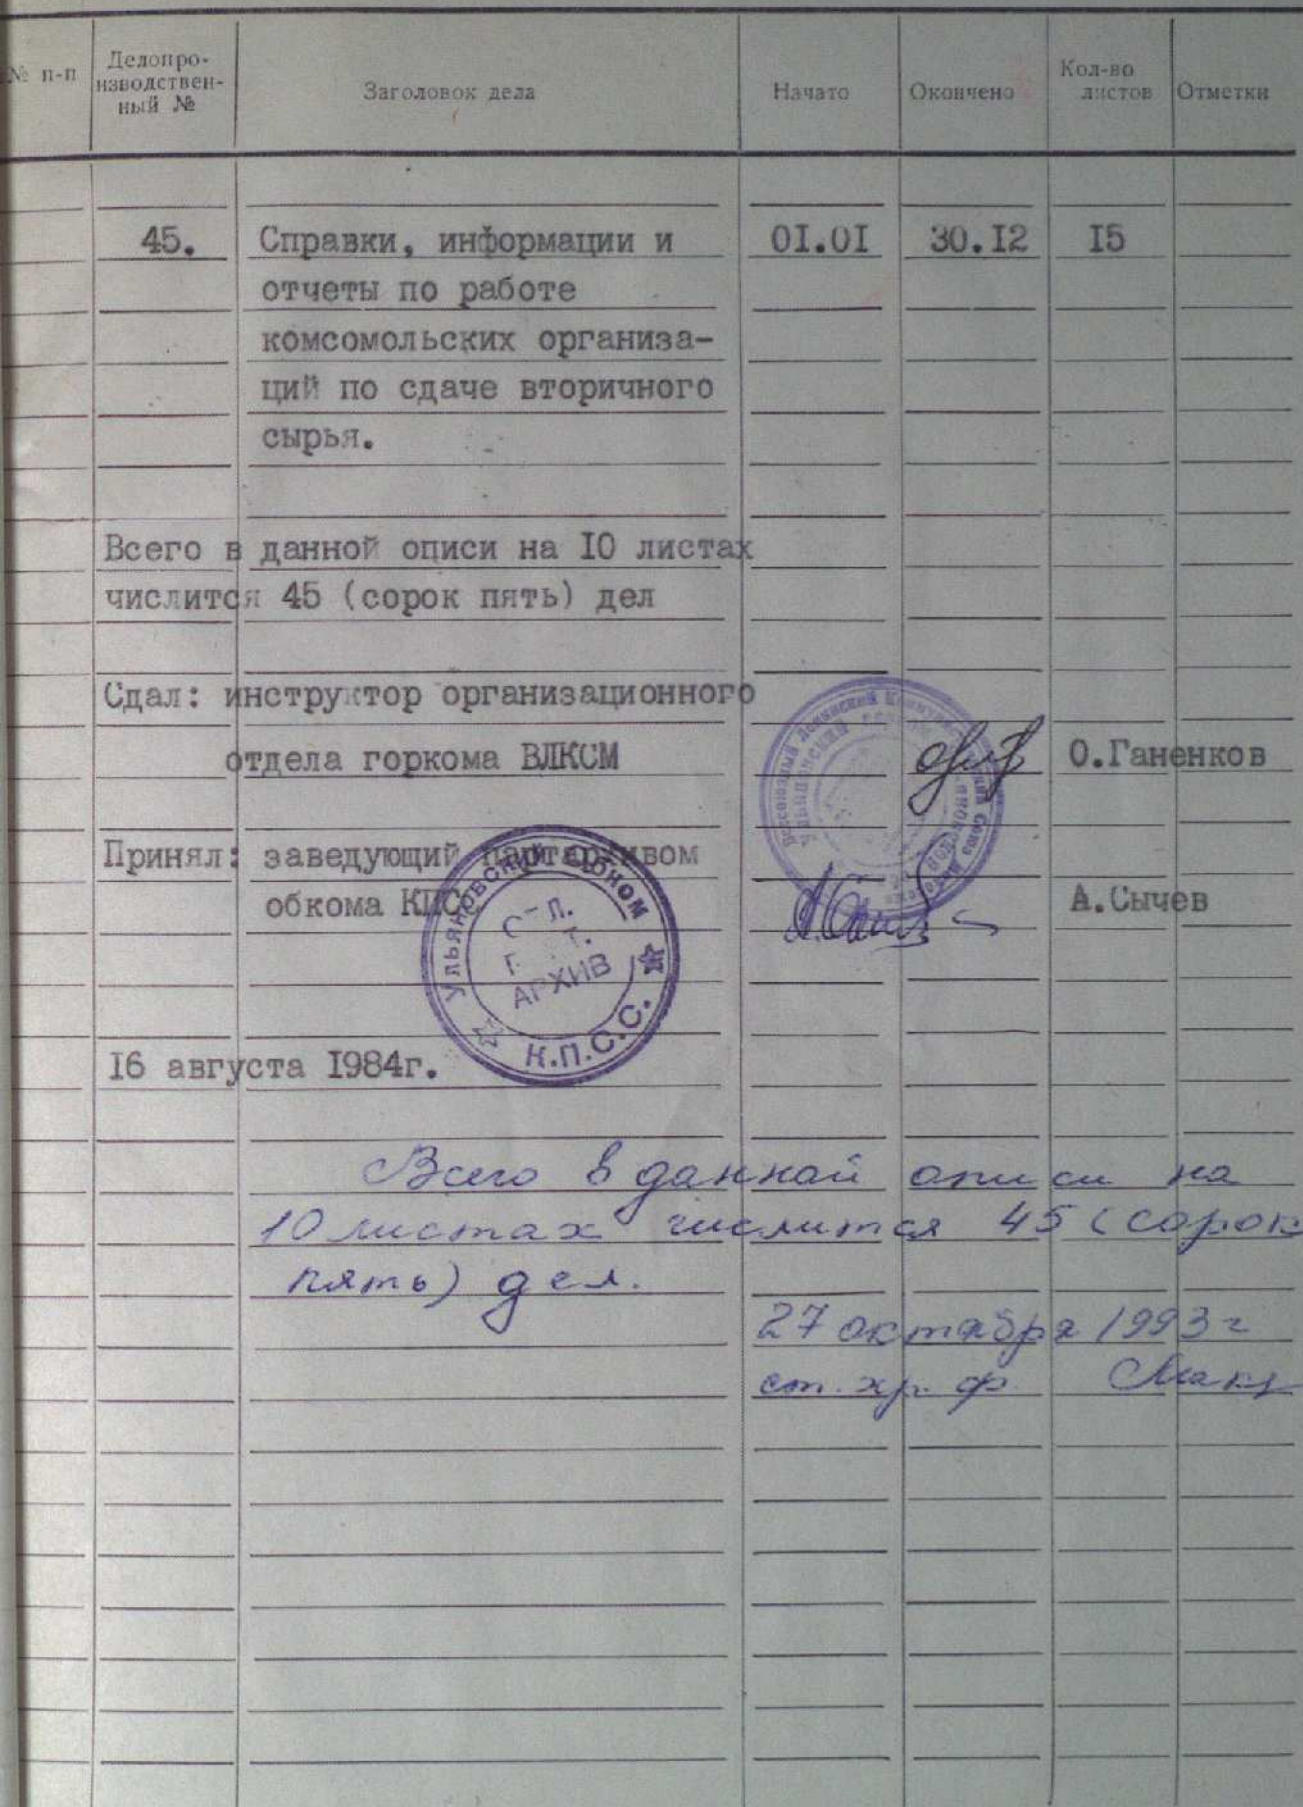 № п-п Делопро- Заголовок дела Начато Окончено Кол-во Отметки
изводствен- листов
ный №
45. Справки, информации и 01.01 30.12 15
отчеты по работе
комсомольских организа-
ций по сдаче вторичного
сырья.
Всего в данной описи на 10 листах
числится 45 (сорок пять) дел
Сдал: инструктор организационного
отдела горкома ВЛКСМ О.Ганенков
Принял: заведующий партархивом
обкома КПСС А.Сычев
Ульяновский обком
АРХИВ
К.П.С.С.
16 августа 1984г.
Всего в данной описи на
10 листах числится 45 (сорок
пять) дел.
27 октября 1993г
ст. хр. ф.